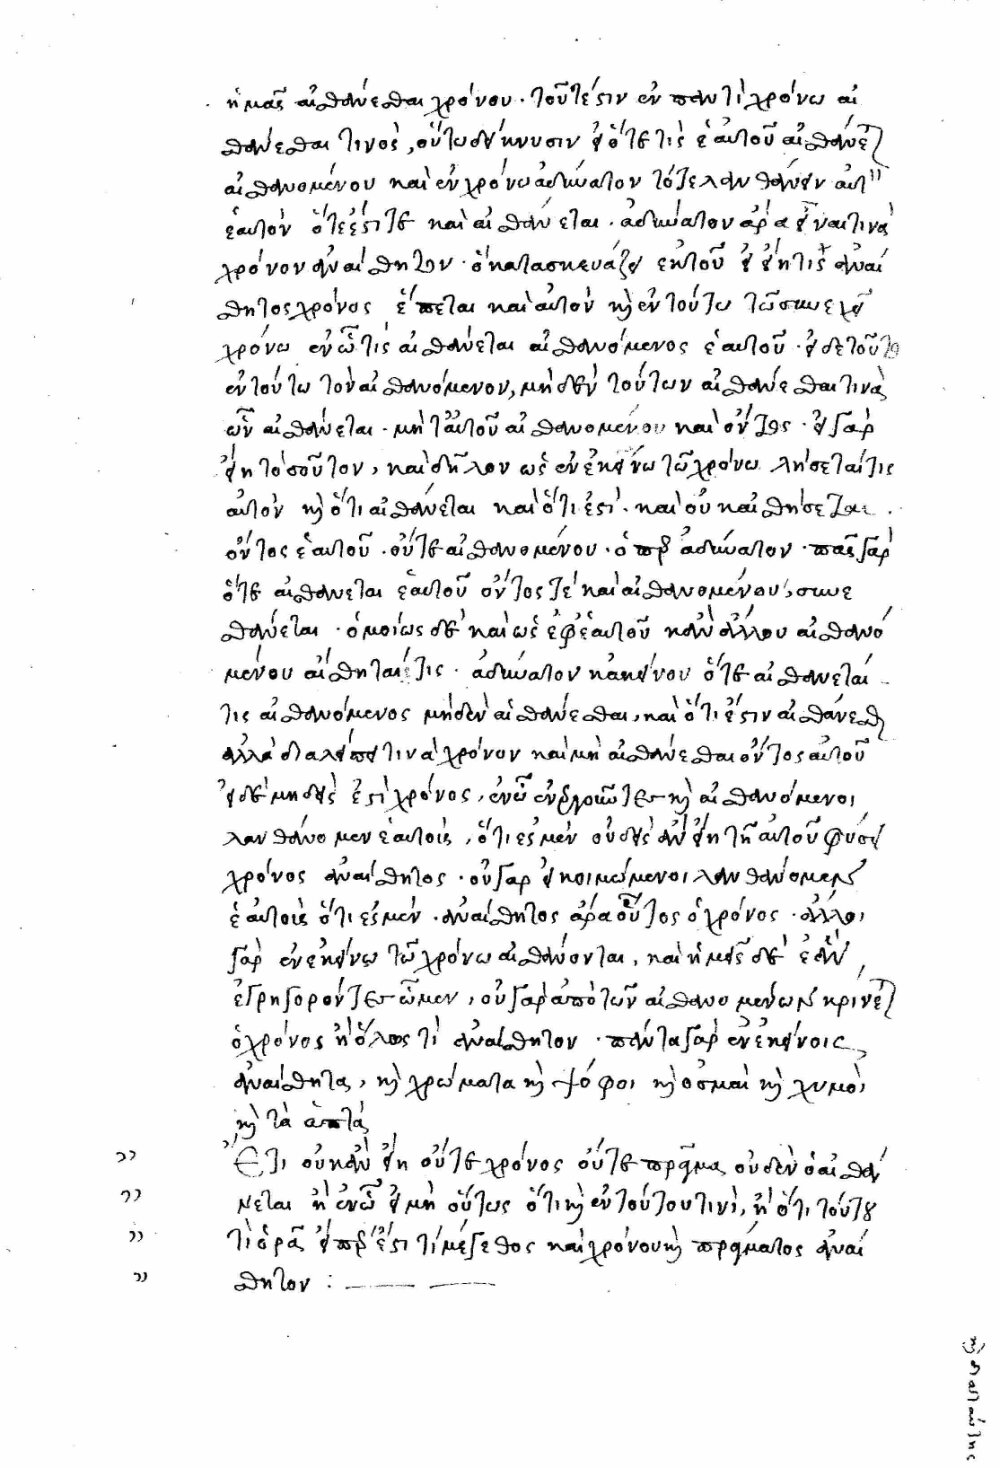 ἡμᾶς αἰσθάνεσθαι χρόνου· τουτέστιν ἐν παντὶ χρόνω αἰ
σθάνεσθαι τινὸς, οὕτω δείκνυσιν εἰ ὅτε τὶς ἑαυτοῦ αἰσθάνεται
αἰσθανομένου καὶ ἐν χρόνω ἀδύνατον τότε λανθάνειν αὐτὸν
ἑαυτὸν ὅτε ἐστί τε καὶ αἰσθάνεται· ἀδύνατον ἄρα εἶναι τινὰ
χρόνον ἀναίσθητον· ὁ κατασκευάζει ἐκ τοῦ εἰ εἴη τις ἀναί
σθητος χρόνος ἕπεται καὶ αὐτὸν καὶ ἐν τούτω τῶ συνεχεῖ
χρόνω ἐν ὧ τίς αἰσθάνεται αἰσθανόμενος ἑαυτοῦ· εἰ δὲ τοῦτο
ἐν τούτω τὸν αἰσθανόμενον, μηδὲν τούτων αἰσθάνεσθαι τινὰ
ὧν αἰσθάνεται· μὴ ταυτοῦ αἰσθανομένου καὶ ὄντος· εἰ γὰρ
εἴη τοσοῦτον, καὶ δῆλον ὡς ἐν ἐκείνω τῶ χρόνω λήσεταί τις
αὐτὸν καὶ ὅτι αἰσθάνεται καὶ ὅτι ἐστί· καὶ οὐκ αἰσθήσεται
ὄντος ἑαυτοῦ· οὔτε αἰσθανομένου· ὅπερ ἀδύνατον· πᾶς γὰρ
ὅτε αἰσθάνεται ἑαυτοῦ ὄντος τε καὶ αἰσθανομένου, συνε
σθάνεται· ὁμοίως δὲ καὶ ὡς ἐφ' ἑαυτοῦ κἂν ἄλλου αἰσθανο
μένου αἴσθηταί τις· ἀδύνατον κἀκείνου ὅτε αἰσθάνεταί
τις αἰσθανόμενος μηδὲν αἰσθάνεσθαι, καὶ ὅτι ἐστὶν αἰσθάνεσθαι
ἀλλὰ διαλείπει τινὰ χρόνον καὶ μὴ αἰσθάνεσθαι ὄντος αὐτοῦ
εἰ δὲ μηδείς ἐστι χρόνος, ἐν ὧ ἐνεργοῦντες καὶ αἰσθανόμενοι
λανθάνομεν ἑαυτοὺς, ὅτι ἐσμὲν οὐδεὶς ἂν εἴη τῆ αὐτοῦ φύσει
χρόνος ἀναίσθητος· οὐ γὰρ εἰ κοιμώμενοι λανθάνομεν
ἑαυτοὺς ὅτι ἐσμὲν· ἀναίσθητος ἄρα οὗτος ὁ χρόνος· ἄλλοι
γὰρ ἐν ἐκείνω τῶ χρόνω αἰσθάνονται, καὶ ἡμεῖς δὲ ἐὰν
ἐγρηγορότες ὦμεν, οὐ γὰρ ἀπὸ τῶν αἰσθανομένων κρίνεται
ὁ χρόνος ἢ ὅλως τὶ ἀναίσθητον· πάντα γὰρ ἐν ἐκείνοις
ἀναίσθητα, καὶ χρώματα καὶ ψόφοι καὶ ὀσμαὶ καὶ χυμοὶ
καὶ τὰ ἁπτά
Ἔτι οὐκ ἂν εἴη οὔτε χρόνος οὔτε πρᾶγμα οὐδὲν ὃ αἰσθά
νεται ἢ ἐν ὧ εἰ μὴ οὕτως ὅτι καὶ ἐν τούτου τινὶ, ἢ ὅτι τούτου
τὶ ὁρᾶ εἴπερ ἐστί τι μέγεθος καὶ χρόνου καὶ πράγματος ἀναί
σθητον :